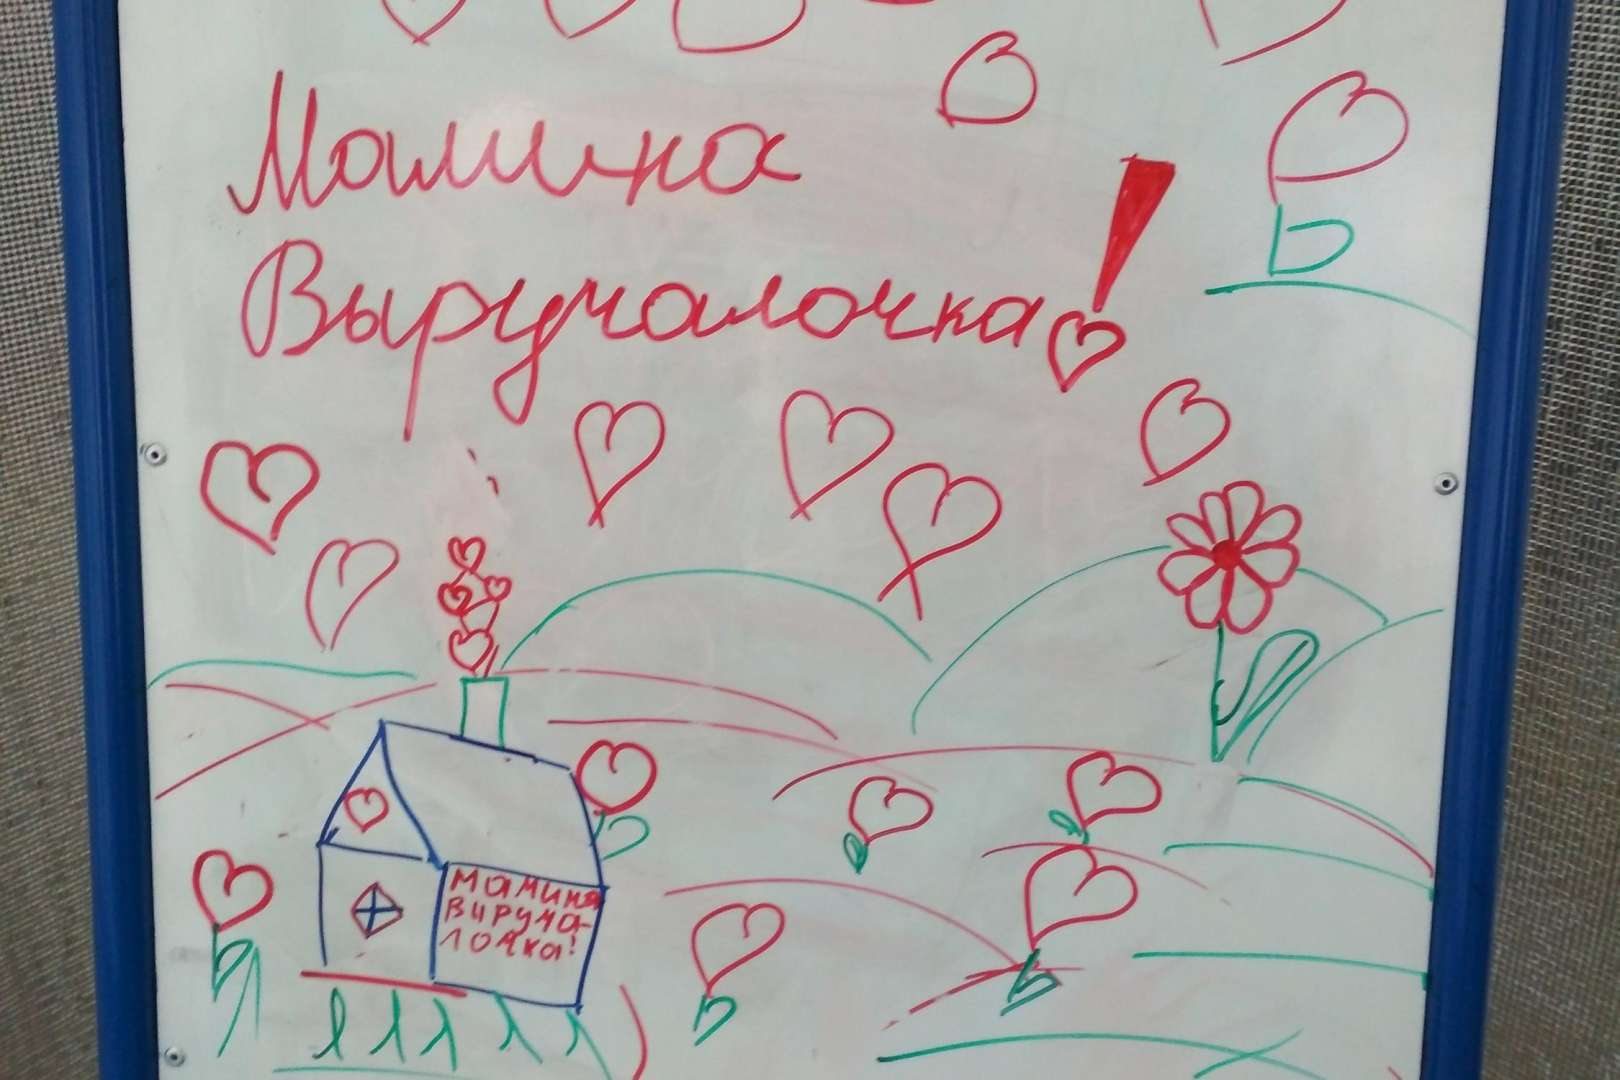 Мамина
Выручалочка!
Мамина
Выруча-
лочка!